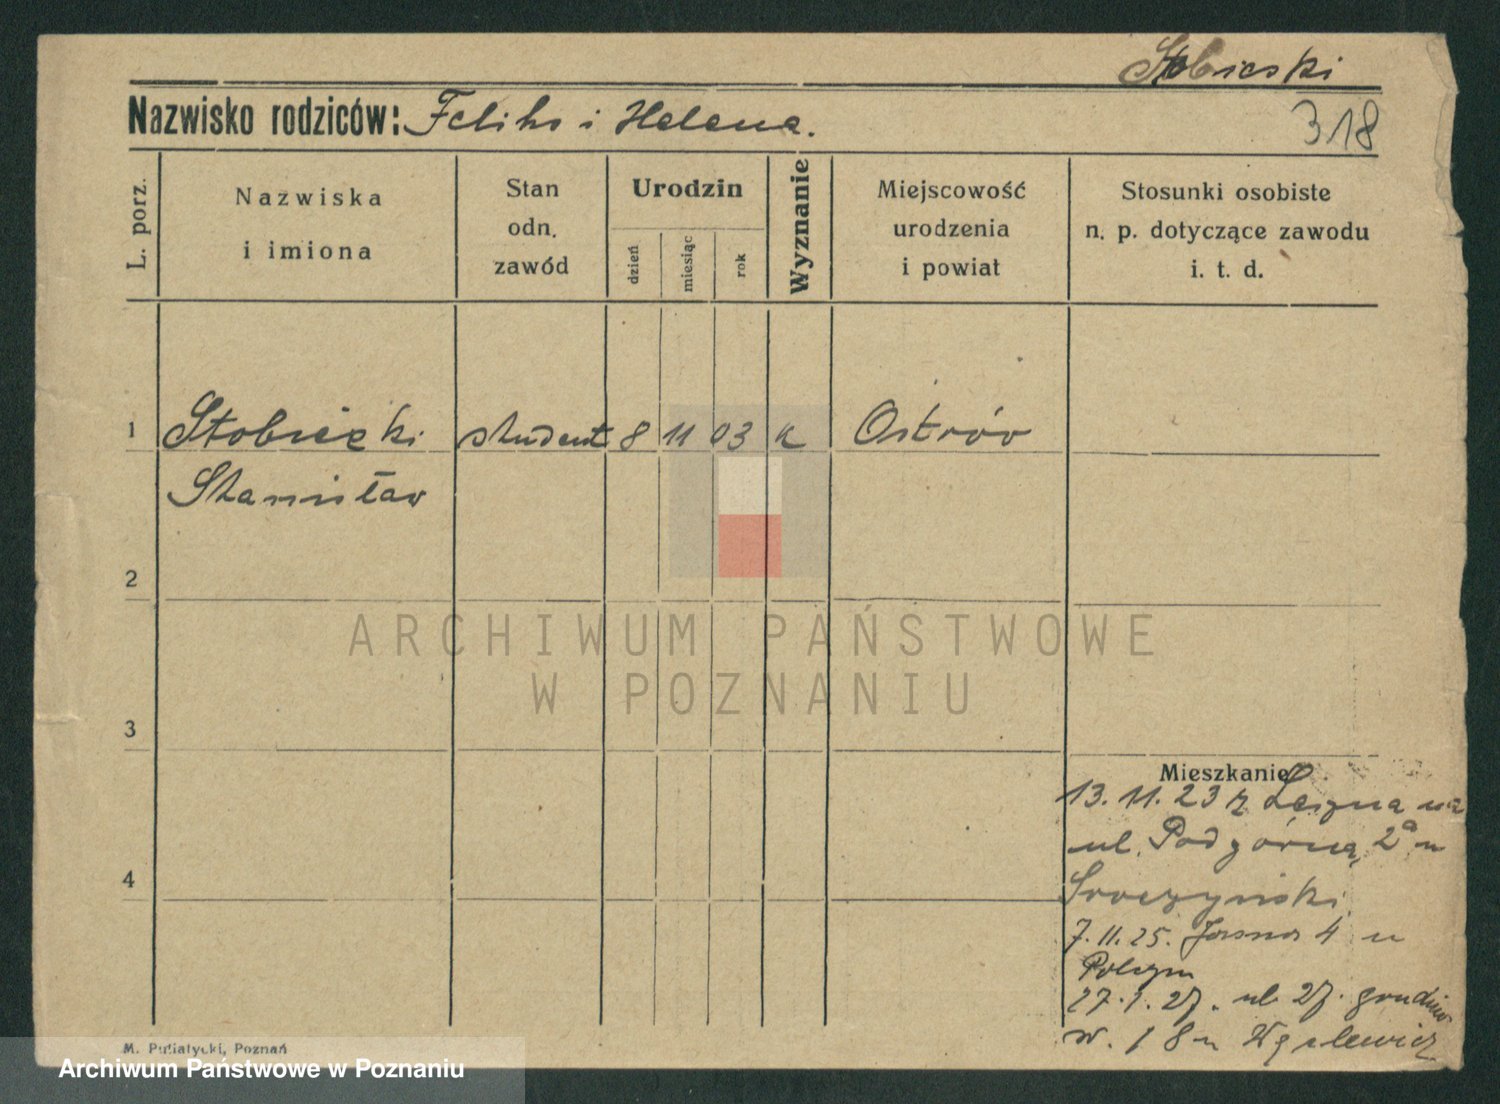 Stobieski
Nazwisko rodziców: Feliks i Helena.
318
L. porz.
Nazwiska
i imiona
Stan
odn.
zawód
Urodzin
dzień
miesiąc
rok
Wyznanie
Miejscowość
urodzenia
i powiat
Stosunki osobiste
n. p. dotyczące zawodu
i. t. d.
1 Stobiecki student 8 11 03 k Ostrów
Stanisław
2
ARCHIWUM PAŃSTWOWE
W POZNANIU
3
4
Mieszkanie
13. 11. 23 z Leszna na
ul. Podgórną 2a u
Sroczyński
7. 11. 25. Jasna 4 u
27. 1. 27. ul. 27. grudnia
18 u
M. Putiatycki, Poznań
Archiwum Państwowe w Poznaniu